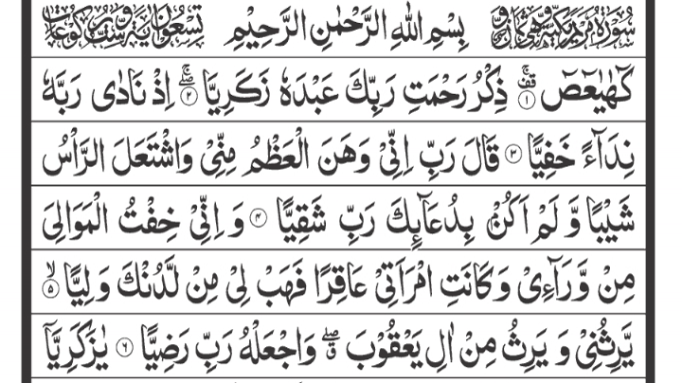 سُوْرَةُ مَرْيَمَ مَكِّيَّةٌ وَّهِيَ ثَمَانٍ وَّ بِسْمِ اللّٰهِ الرَّحْمٰنِ الرَّحِيْمِ تِسْعُوْنَ اٰيَةً وَّسِتُّ رُكُوْعَاتٍ
كٓهٰيٰعٓصٓ ۚ۟ۙ ۱ ذِكْرُ رَحْمَتِ رَبِّكَ عَبْدَهٗ زَكَرِيَّا ۖۚ ۲ اِذْ نَادٰى رَبَّهٗ
نِدَآءً خَفِيًّا ۳ قَالَ رَبِّ اِنِّيْ وَهَنَ الْعَظْمُ مِنِّيْ وَاشْتَعَلَ الرَّاْسُ
شَيْبًا وَّ لَمْ اَكُنْۢ بِدُعَآئِكَ رَبِّ شَقِيًّا ۴ وَ اِنِّيْ خِفْتُ الْمَوَالِيَ
مِنْ وَّرَآءِيْ وَ كَانَتِ امْرَاَتِيْ عَاقِرًا فَهَبْ لِيْ مِنْ لَّدُنْكَ وَلِيًّا ۙ ۵
يَّرِثُنِيْ وَ يَرِثُ مِنْ اٰلِ يَعْقُوْبَ ۖۗ وَاجْعَلْهُ رَبِّ رَضِيًّا ۶ يٰزَكَرِيَّآ